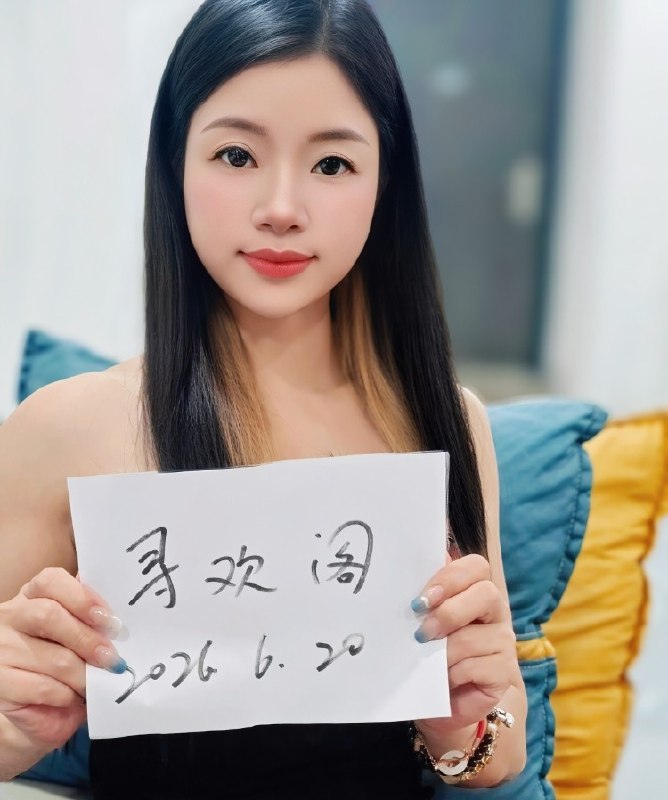 寻欢阁
2026 6. 20